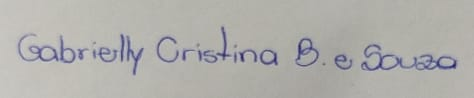 Gabrielly Cristina B. e Souza